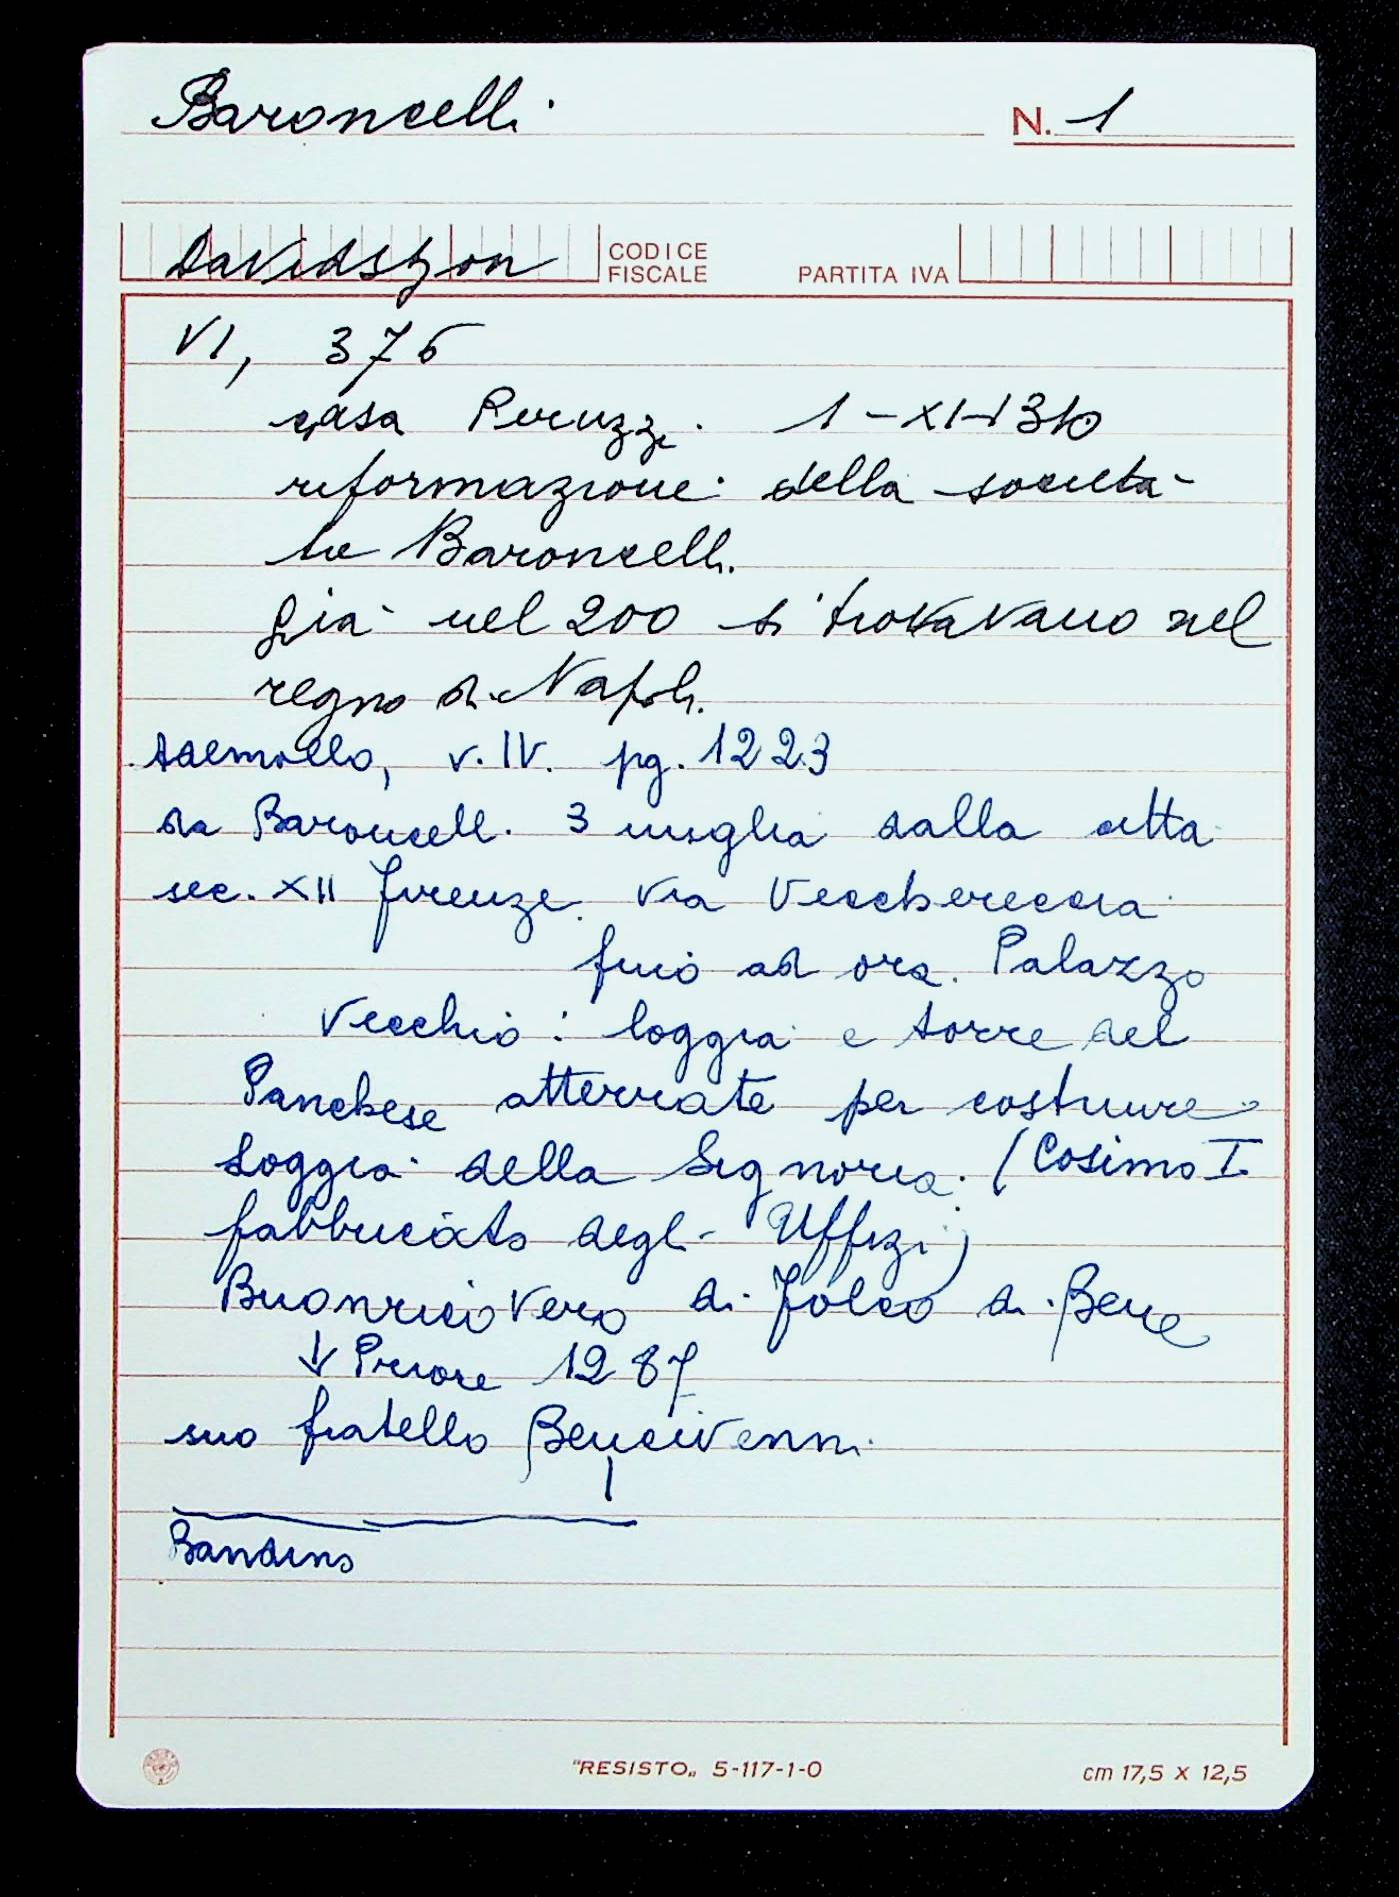 Baroncelli
N. 1
Davidshon
CODICE FISCALE
PARTITA IVA
VI, 376
casa Peruzzi. 1-XI-1310
riformazione della società
tre Baroncelli.
già nel 200 si trovavano nel
regno di Napoli.
Ademollo, v. IV. pg. 1223
da Baroncelli. 3 miglia dalla città
sec. XII Firenze. Via Vecchereccia
fino ad ora. Palazzo
Vecchio: loggia e torre del
Panchese atterrate per costruire
Loggia della Signoria. (Cosimo I
fabbricato degli Uffizi)
Buonricovero di Folco di Bene
↓ Priore 1287
suo fratello Bencivenni
Bandino
"RESISTO„ 5-117-1-0
cm 17,5 x 12,5